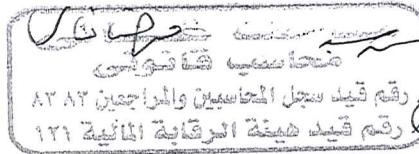 محاسب قانونى
رقم قيد سجل المحاسبين والمراجعين ٨٣٨٣
رقم قيد هيئة الرقابة المالية ١٢١